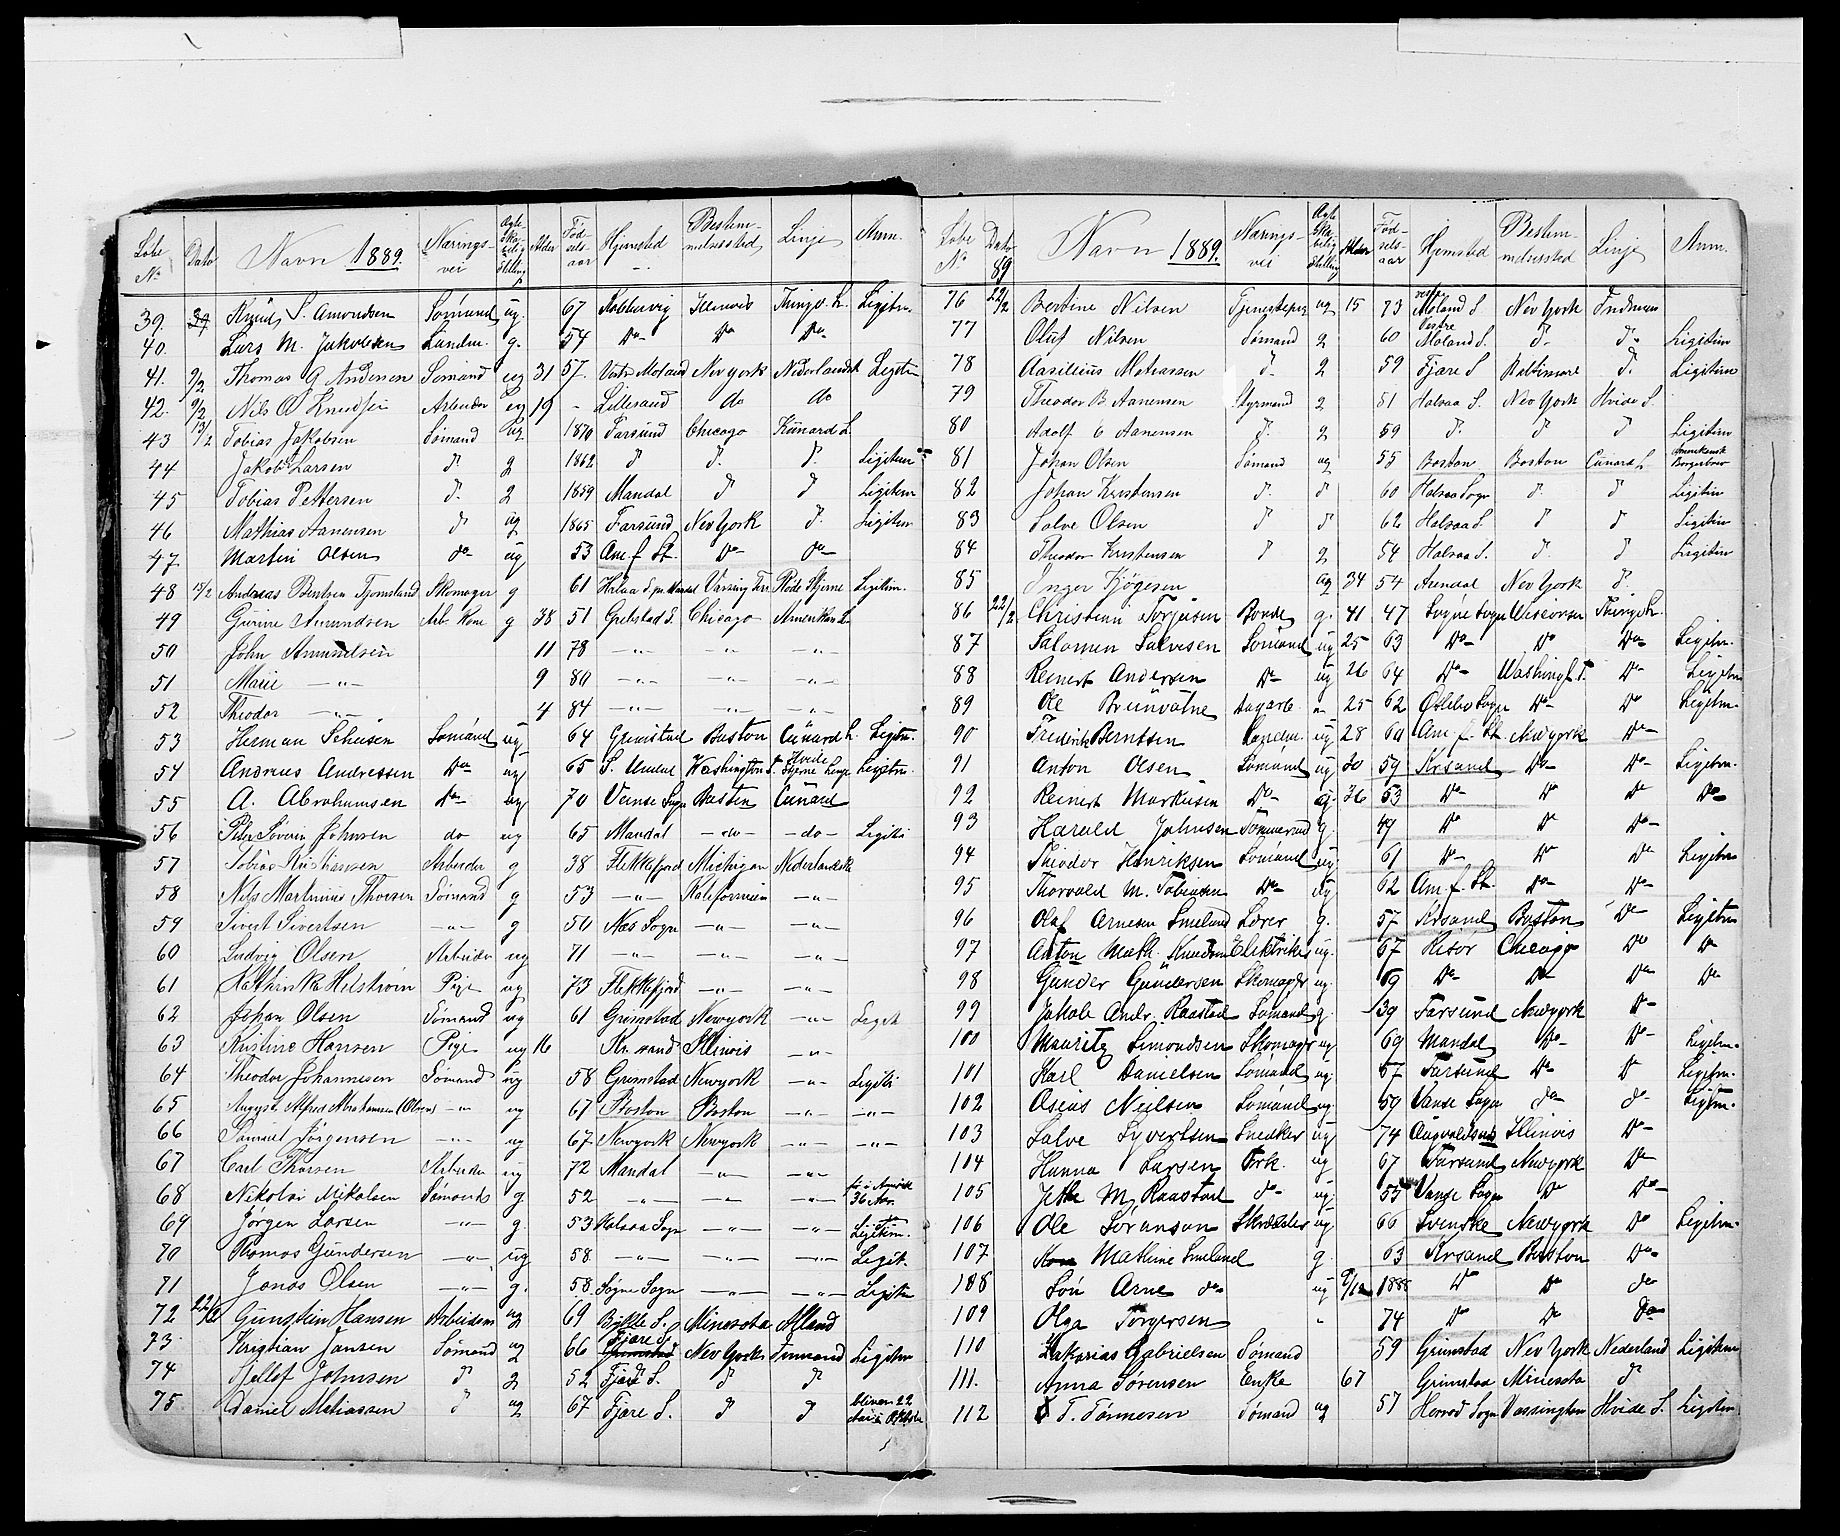 Løbe No Dato Navn 1889. Nærings-vei Ægteskabelig Stilling Alder Fødselsaar Hjemsted Bestemmelsessted Linje Anm.
39. Knud S. Amundsen Sømand ug. 67 Illinois Thingv. L. Legitm.
40. Lars M. Jakobsen Landm. g. 54 Do Do Do
41. 9/2 Thomas G Andersen Sømand ug 31 57. Vestre Moland New york Nederlandsk Legitm
42. 9/2 Nils O Knudsen Arbeider ug 19 - Lillesand do do
43 13/2 Tobias Jakobsen Sømand ug 1870 Farsund Chicago Kunard L.
44 Jakob Larsen d. g 1862 d d. d. Legitim
45 Tobias Pettersen d. g 1859 Mandal d d Legitim
46 Mathias Aanensen d ug 1865 Farsund New York d. Legitim
47 Martin Olsen do ug 53 Am. f. St. Do Do
48 15/2 Andreas Berntsen Tjomsland Skomager g 61 Halsaa S. pr. Mandal Røde Stjerne Legitim.
49 Gurine Amundsen Arb. Kone g 38 51 Grebstad S. Chicago Amerikan L
50 John Amundsen 11 78 -"- -"- -"-
51 Marie -"- 9 80 -"- -"- -"-
52 Theodor -"- 4 84 -"- -"- -"-
53 Herman Sømand ug 64 Grimstad Boston Cunard L. Legitm.
54 Andreas Andressen Do ug 65 S. Undal Washington T. Hvide Stjerne Linje Legitm.
55 A. Abrahamsen Do ug 70 Vanse Sogn Boston Cunard
56 Peder Severin Johnsen do ug 65 Mandal -do- -do- Legiti
57 Tobias Kristiansen Arbeider g 38 Flekkefjord Michigan Nederlandsk
58 Nils Martinius Thorsen Sømand g 53 -"- Kalifornien -"-
59 Sivert Sivertsen -"- g 50 Næs Sogn -"- -"-
60 Ludvig Olsen Arbeider ug 71 -"- -"- -"-
61 Kathinka Helstrøm Pige ug 73 Flekkefjord -"- -"-
62 Johan Olsen Sømand ug 61 Grimstad Newyork -"- Legit
63 Kristine Hansen Pige ug 16 Kr. sand Illinois -"-
64 Theodor Johannesen Sømand ug 58 Grimstad Newyork -"- Legiti
65 August Alfred Abrahamsen (Olsen) -"- ug 67 Boston Boston -"- -"-
66 Samuel Jørgensen -"- ug 67 Newyork Newyork -"- -"-
67 Carl Thorsen Arbeider ug 72 Mandal -"- -"-
68 Nikolai Nikolsen Sømand g 52 -"- -"- -"- 36 Aar.
69 Jørgen Larsen -"- g. 53 Halsaa Sogn -"- -"- Legitim.
70 Thomas Gundersen -"- ug 58 -"- -"- -"- Legit.
71 Jonas Olsen -"- g. 58 Søgne Sogn -"- -"- Legiti
72 22/2 Gunstein Hansen Arbeidsm ug 69 Bykle S. Minesota Alland
73 Kristian Jansen Sømand ug 66 Fjære S. New York Inmand Legitim
74 Sillef Johnsen d g 52 Fjære S. d d
75 Daniel Matiassen d ug 67 Fjære S. d d bliver 22
Løbe No Dato 89 Navn 1889. Nærings-vei Ægteskabelig Stilling Alder Fødselsaar Hjemsted Bestemmelsessted Linje Anm.
76 22/2 Bertine Nilsen Tjenestepig ug 15 73 vestre Moland S. New York Indman
77 Oluf Nilsen Sømand g 60 Vestre Moland S. d. d. Legitim
78 Aasilius Matiassen d. g 59 Fjære S Baltimore d. Legitim
79 Theodor B Aanensen Styrmand g 51 Halsaa S. New York Hvide S.
80 Adolf C Aanensen d. g 59 d. d d Legitim
81 Johan Olsen Sømand ug 55 Boston Boston Cunard L Amerikansk Borgerbrev
82 Johan Kristensen d. d 60 Halsaa Sogn d. d Legitim
83 Salve Olsen d d 62 Halsaa S. d d Legitim
84 Theodor Kristensen d g 54 Halsaa S. d. d Legitim
85 Inger ug 34 54 Arendal New York d.
86 22/2 Christian Torjusen Bonde g. 41 47 Søgne Sogn Wisconsin Thingv L.
87 Salomon Salvesen Sømand ug 25 63 Do Do Do Legitm.
88 Reinert Andersen Do ug 26 64 Do Washingt. T. Do Legitm
89 Ole Brunvatne Dagarb. " 25 62 Øslebo Sogn Do Do Legitm.
90 Fredrik Berntsen Landm. ug 28 60 Am. f. St. Newyork Do
91 Anton Olsen Sømand ug 30 59 Krsand Do Do Legitm
92 Reinert Markusen Do g. 36 53 Do Do Do Do
93 Harald Johnsen Tømmermd g. 49 Do Do Do
94 Theodor Henriksen Sømand ug 61 Do Do Do Legitm
95 Thorvald M. Tobiassen Do ug 62 Am. f. St. Do Do
96 Olaf Arnesen Smeland Lærer g. 57 Krsand Boston Do Legitm
97 Anton Math. Knudsen Elektriker ug. 67 Risør Chicago Do Do
98 Gunder Gundersen Skomager ug 69 Do Do Do Do
99 Jakob Andr. Raastad Sømand g. 39 Farsund Newyork Do
100 Mauritz Simondsen Skomager ug 69 Mandal Do Do Legitm.
101 Karl Danielsen Sømand ug 67 Farsund Do D Legitm.
102 Osias Neilsen Sømand ug. 59 Vanse Sogn do do Legitm.
103 Salve Syvertsen Snedker ug 74 Augvaldsnes Illinois Do
104 Hanna Larsen Frk. ug 67 Farsund Newyork Do
105 M. Raastad do ug 55 Vanse Sogn Do Do
106 Ole Sørenson Skrædder ug 66 Svenske Newyork Do Legitm.
107. Mathine Smeland g. 63 Krsand Boston Do
108 Søn Arne do ug 9/12 1888 Do Do do
109 Olga Torgersen " 74 Do Do Do
110 Zakarias Gabrielsen Sømand 59 Grimstad New York Nederland Legitim
111. Anna Sørensen Enke 67 Grimstad Minesota d
112 T. Tønnesen Sømand ug 57 Herred Sogn Vassington Hvide S. Legitim